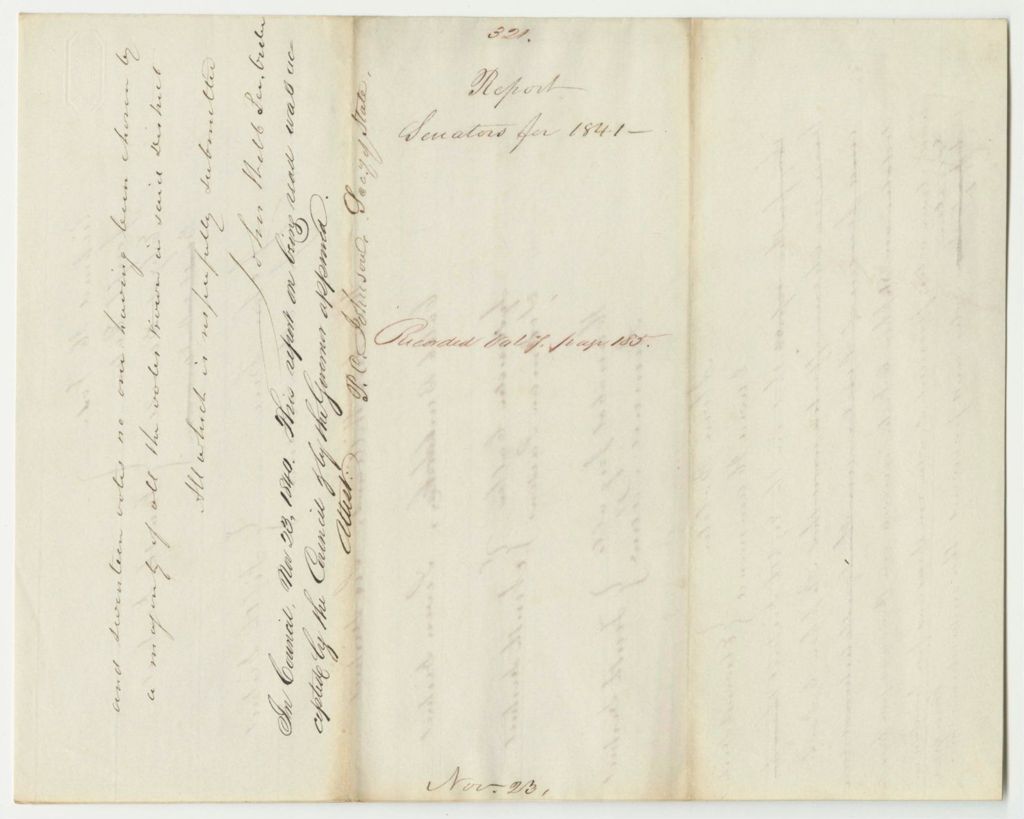 321.
Report
Senators for 1841 —
Recorded Vol 7. page 185.
Nov. 23,
and seventeen votes no one having been chosen by
a majority of all the votes thrown in said District
All which is respectfully submitted
John Per. order
In Council, Nov 23, 1840. This report on being read was ac
cepted by the Council & by the Governor approved.
Attest:
P. C. Johnson, Secy of State.